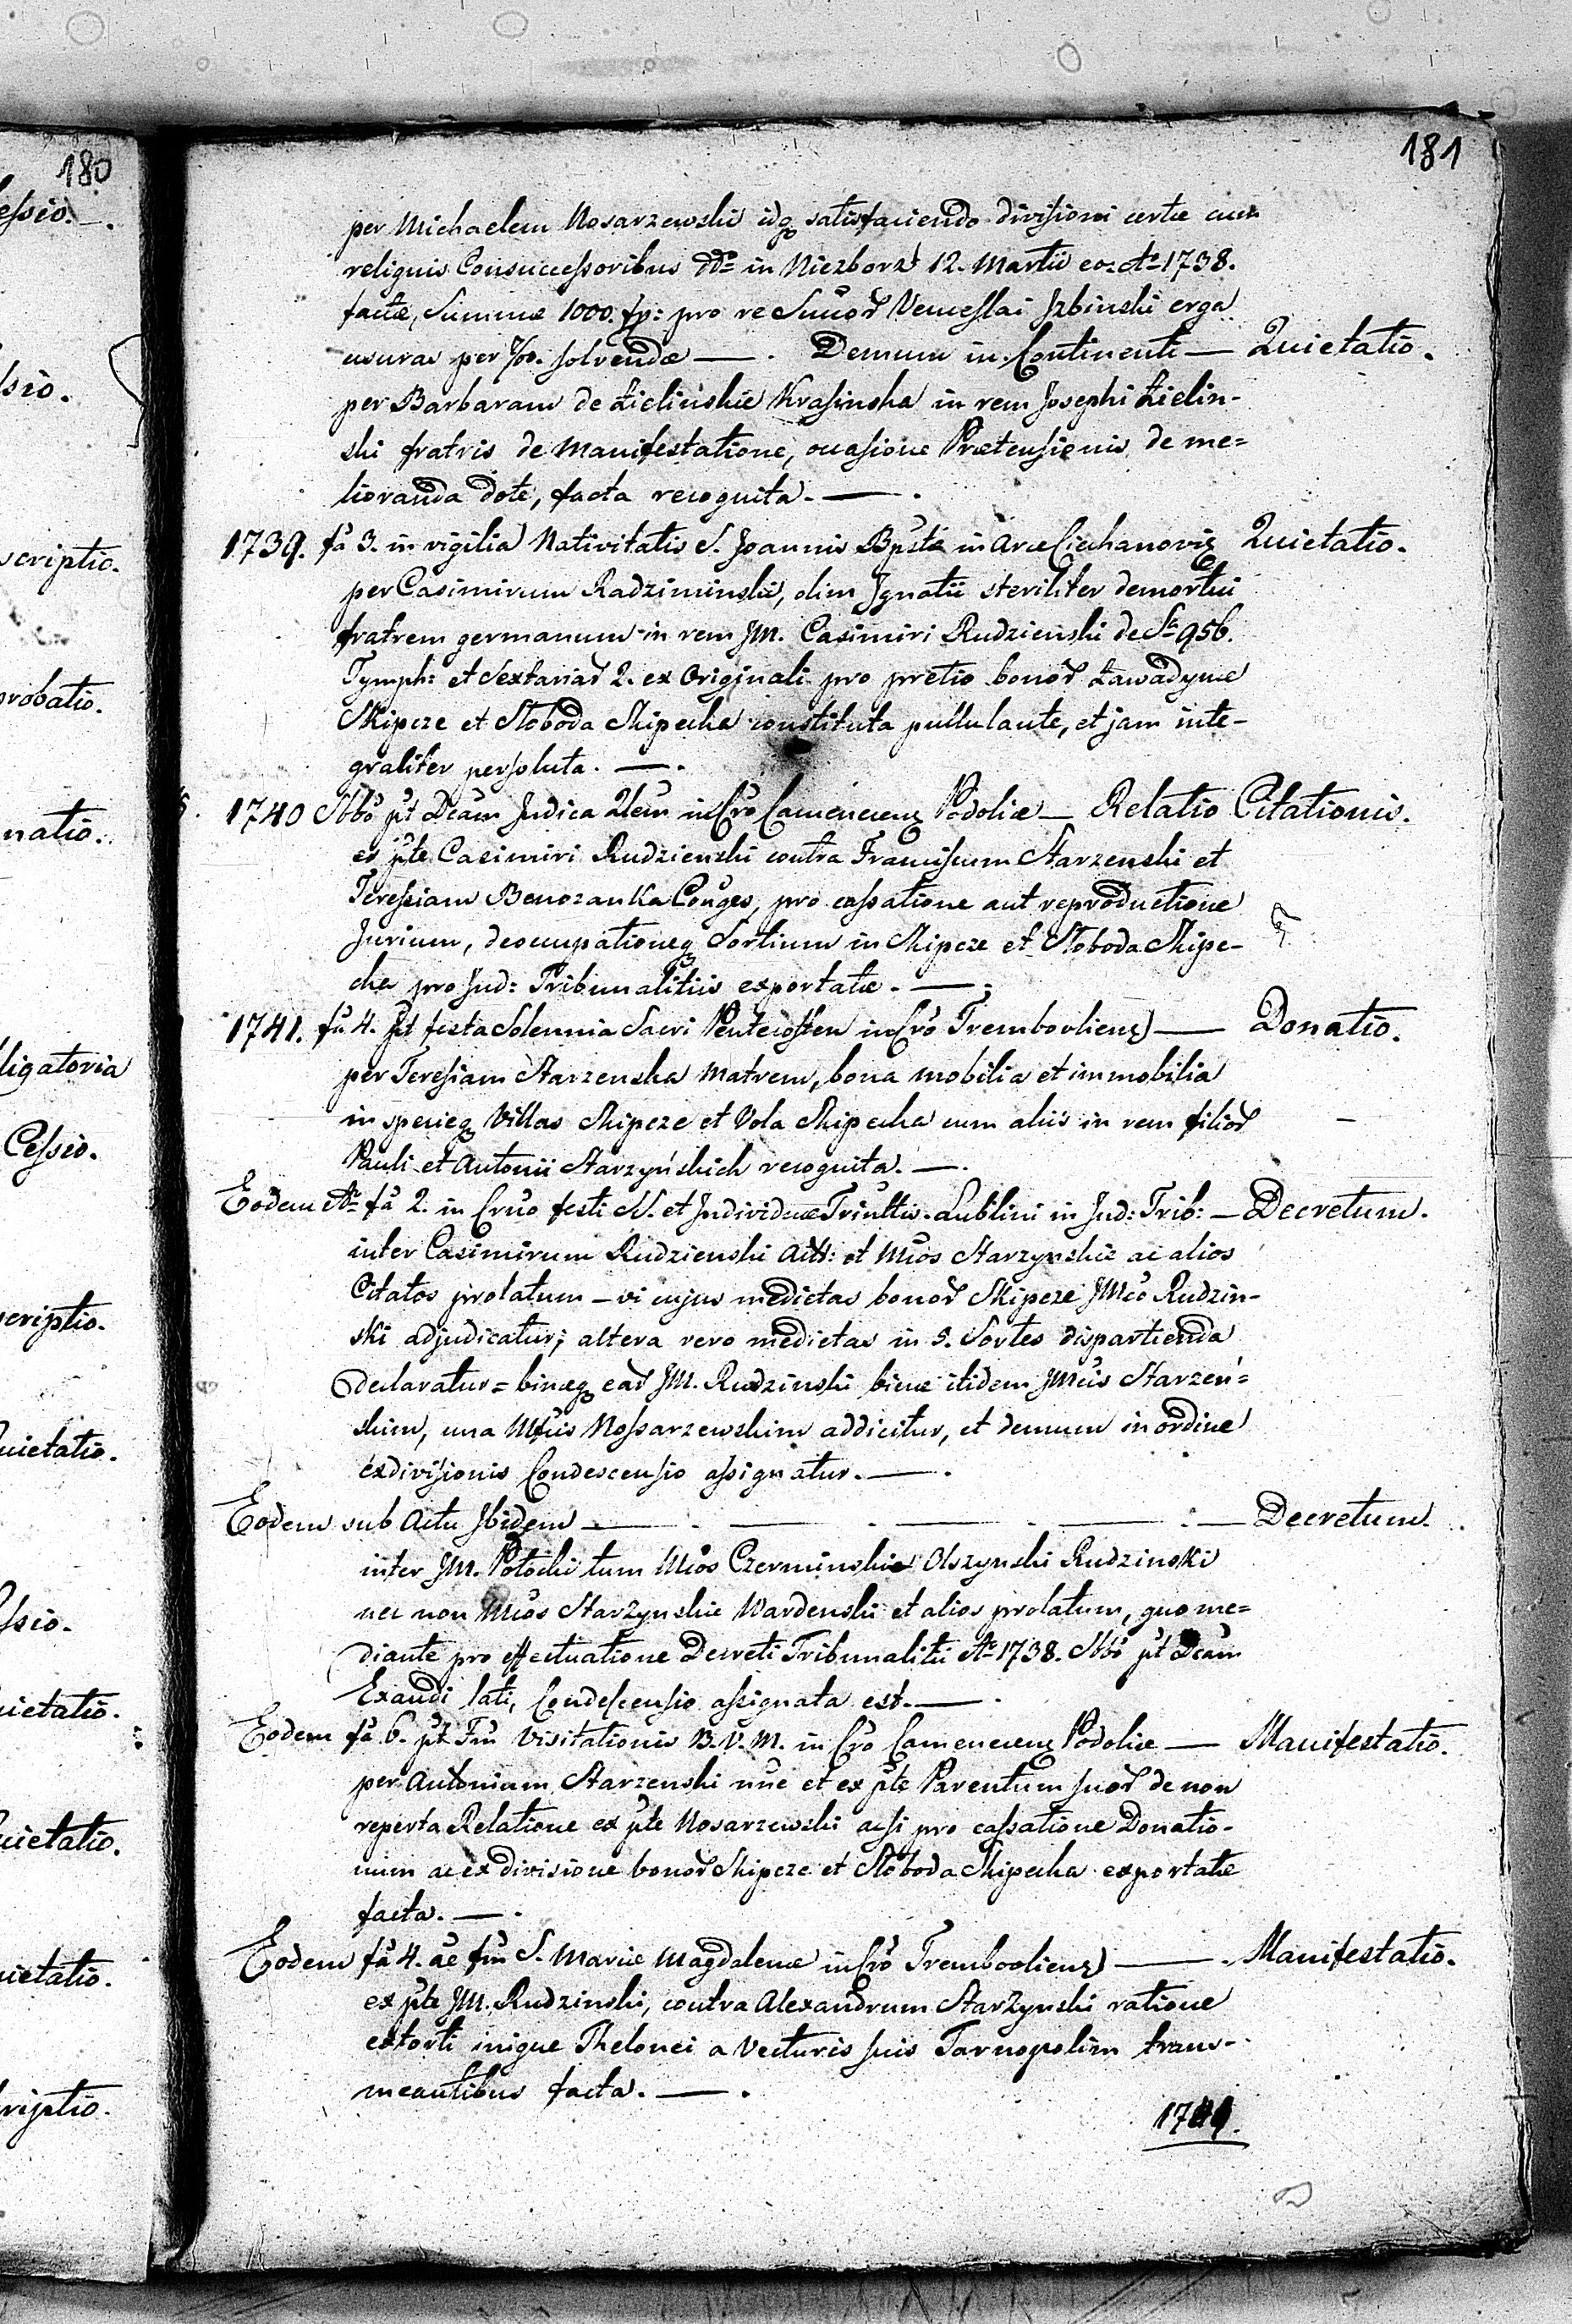 180
essio.
sio.
scriptio.
probatio.
natio.
ligatoria
Cessio.
scriptio.
uietatio.
ssio.
uietatio.
uietatio.
uietatio.
criptio.
181
per Michaelem Nosarzewski idq satisfaciendo divisioni certæ cum
reliquis Consuccessoribus ddo in Niezborz 12. Martii eo. Ao 1738.
factæ, Summæ 1000. fp: pro re Venceslai Izbinski erga
usuras per 7/00. solvendæ — . Demum in Continenti — Quietatio.
per Barbaram de Zielinskie Krasinska in rem Josephi Zielin-
ski fratris de Manifestatione, occasione Prætensionis de me=
lioranda dote, facta recognita. — .
1739. fa 3. in vigilia Nativitatis S. Joannis Bpstæ in Arce Ciechanovię Quietatio.
per Casimirum Radziminski, olim Ignatii steriliter demortui
fratrem germanum in rem JM. Casimiri Rudzienski de Sa 956.
Tymph: et sextariar 2. ex Originali pro pretio bonor Zawadynce
Skipcze et Sloboda Skipecka constituta pullulante, et jam inte-
graliter persoluta. — .
1740 Sbbo pt Dcam Judica 2lem in Cro Camenecenę Podoliæ — Relatio Citationis.
ex pte Casimiri Rudzienski contra Franciscum Starzenski et
Teressiam Benozanka Conges, pro cassatione aut reproductione
Jurium, deoccupationeq Sortium in Skipcze et Sloboda Skipe-
cka pro Jud: Tribunalitiis exportatæ. — .
1741. fa 4. pt festa Solennia Sacri Pentecosten in Cro Tremboolienę — Donatio.
per Teresiam Starzenska Matrem, bona mobilia et immobilia
in specieq Villas Skipcze et Vola Skipecka cum aliis in rem filior
Pauli et Antonii Starzyńskich recognita. — .
Eodem Ao fa 2. in Crno festi SS. et Individuæ Trinttis. Lublini in Jud: Trib: — Decretum.
inter Casimirum Rudzienski Act: et Mcos Starzynskie ac alios
Citatos prolatum — vi cujus medietas bonor Skipcze JMco Rudzin-
ski adjudicatur; altera vero medietas in 5. Sortes dispartienda
declaratur = binæq ear JM. Rudzinski binæ itidem JMcis Starzeń=
skim, una Mcis Nossarzewskim addicitur, et demum in ordine
exdivisionis Condescensio assignatur. — .
Eodem sub Actu Ibidem — . — . — . — . — Decretum.
inter JM. Potocki tum Mcos Czerminskie Olszynski Rudzinski
nec non Mcos Starzynskie Wardenski et alios prolatum, quo me=
diante pro effectuatione Decreti Tribunalitii Ao 1738. Sbbo pt Dcam
Exaudi lati, Condescensio assignata est. — .
Eodem fa 6. pt Fm Visitationis B.V.M. in Cro Camenecenę Podoliæ — Manifestatio.
per Antoniam Starzenski nne et ex pte Parentum suor de non
reperta Relatione ex pte Nosarzewski acsi pro cassatione Donatio-
num ac exdivisione bonor Skipcze et Sloboda Skipecka exportatæ
facta. — .
Eodem fa 4. ae fm S. Mariæ Magdalenæ in Cro Tremboolienę — . Manifestatio.
ex pte JM. Rudzinski, contra Alexandrum Starzynski ratione
extorti inique Thelonei a Vecturis suis Tarnopolim trans-
meantibus facta. — .